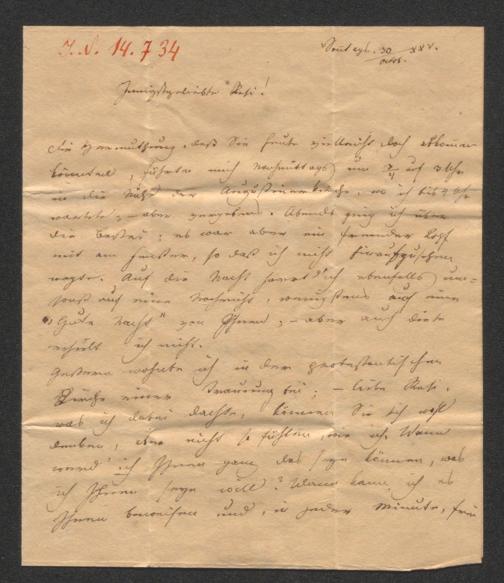 I.N. 14.734
Sonntags. 30 XXV.
octob.
Innigstgeliebte Resi!
Die Vermuthung, daß Sie heute vielleicht doch abkommen
könnten, führte mich Nachmittags um ¾ auf 3 Uhr
in die Nähe der Augustinerkirche, wo ich bis 4 Uhr
wartete, – aber vergebens. Abends ging ich über
die Bastei; es war aber ein fremder Kopf
mit am Fenster, so daß ich nicht hinaufzusehen
wagte. Auf die Nacht harrt' ich ebenfalls um=
sonst auf eine Nachricht, wenigstens auf eine
"Gute Nacht" von Ihnen, – aber auch diese
erhielt ich nicht.
Gestern wohnte ich in der protestantischen
Kirche einer Trauung bei; – liebe Resi,
was ich dabei dachte, können Sie sich wohl
denken, aber nicht so fühlen, wie ich. Wann
werd' ich Ihnen ganz das seyn können, was
ich Ihnen seyn will? Wann kann ich es
Ihnen beweisen und, in jeder Minute,